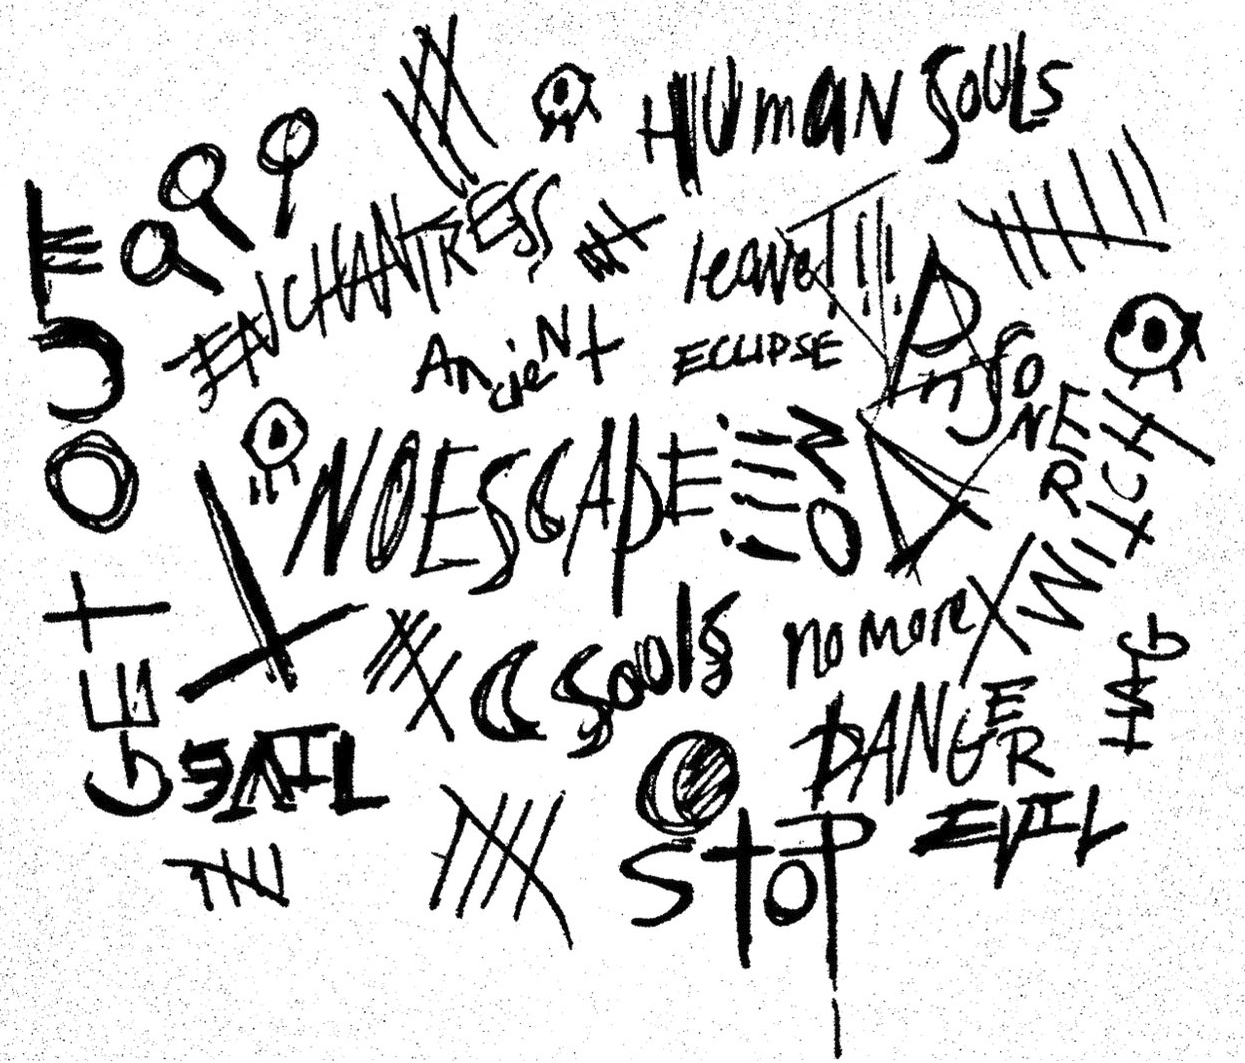 HUMAN SOULS
ENCHANTRESS
leave!!!
Ancient
ECLIPSE
PRISONER
WITCH
NO ESCAPE
GET OUT
souls
no more
HAG
DANGER
EVIL
EVIL
STOP